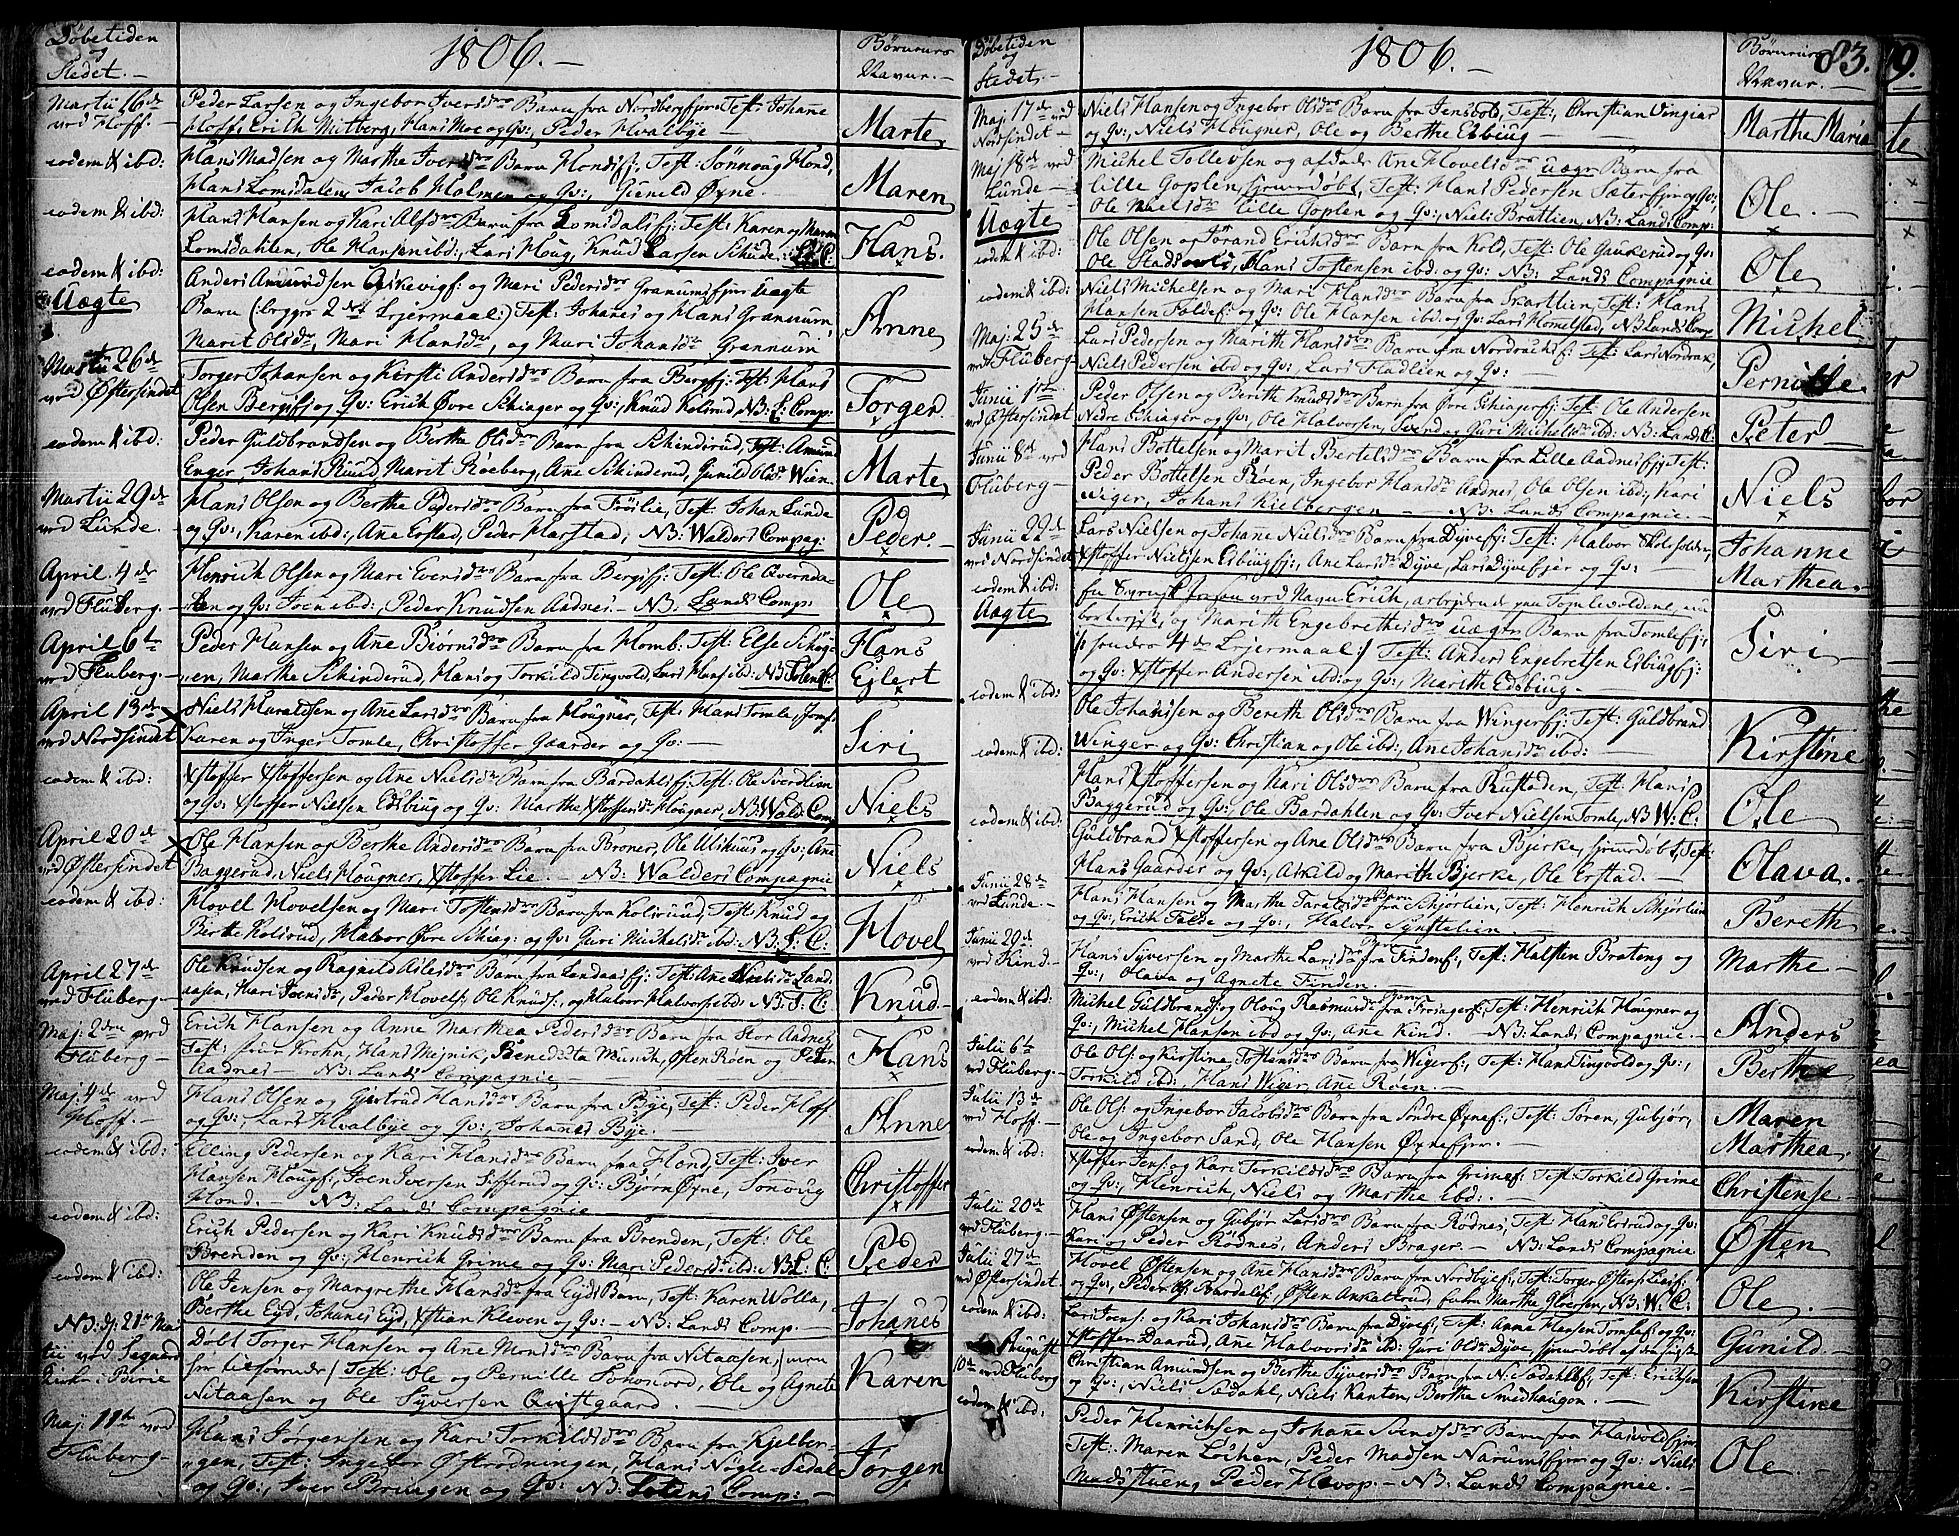 Døbetiden
og
Stedet. —
1806. —
Børnenes
Navne. —
Martii 16de
ved Hoff. —
Peder Larsen og Ingebor Iversdr Barn fra Nordbergfjer: Test: Johane
Hoff, Erich Mitberg, Hans Moe og Qv:, Peder Hvalbye —
Marte
eodem & ibd:
Hans Madsen og Marthe Iversdr Barn Hondsfj: Test: Sönnoug Hond,
Hans Lomsdalen, Jacob Holmen og Qv:, Gunild Øyne.
Maren
eodem & ibd:
Hans Hansen og Kari Alfsdr Barn fra Lomsdalsfj: Test: Karen og Maren
Lomsdahlen, Ole Hansen ibd:, Lars Houg, Knud Larsen Schude.
Hans.
eodem & ibd:
Uægte
Anders Amundsen Askevigf: og Mari Pedersdr Granumsfjer uægte
Barn (begges 2det Lejermaal:) Test: Johanes og Hans Grannum,
Marit Olsdr, Mari Hansdr, og Mari Johansdr Grannum
Anne
Martii 26de
ved Østersindet
Torger Johansen og Kirsti Andersdr Barn fra Bergsfj: Test: Hans
Olsen Bergsfj og Qv: Erich Øvre Schiager og Qv:, Knud Kolsrud, NB: L: Comp:
Torger
eodem & ibd:
Peder Guldbrandsen og Berthe Olsdr Barn fra Schinderud, Test: Amund
Enger, Johans Ruud, Marit Röeberg, Ane Schinderud, Gunild Olsdr Wien
Marte
Martii 29de
ved Lunde.
Hans Olsen og Berthe Pedersdr Barn fra Fröslie, Test: Johan Lunde
og Qv:, Karen ibd:, Ane Erstad, Peder Harstad, NB: Walders Compag:
Peder.
April. 4de
ved Fluberg —
Henrich Olsen og Mari Evensdr Barn fra Bergsfj: Test: Ole Qvernda-
len og Qv: Joen ibd:, Peder Knudsen Aadnes. — NB: Lands Comp:
Ole
April 6te
ved Fluberg. —
Peder Hansen og Ane Biörnsdr Barn fra Homb: Test: Else Schög-
en, Marthe Schinderud, Hans og Torkild Tingvold, Lars Haas ibd: NB Tolens C:
Hans
Ejlert
April 13de
ved Nordsindet
Niels Haraldsen og Ane Larsdr Barn fra Hougner, Test: Hans Tomle, Jomf:
Karen og Inger Tomle, Christoffer Gaarder og Qv: —
Siri
eodem & ibd:
Xstoffer Xstoffersen og Ane Nielsdr Barn fra Bardahlsfj: Test: Ole Sverdlien
og Qv: Xstoffer Nielsen Edsbiug og Qv: Marthe Xstoffersdr Hougner, NB: Wald: Comp
Niels
April 20de
ved Østersindet
Ole Hansen og Berthe Andersdr Barn fra Broner, Ole Ulshuus og Qv:, Ane
Baggerud, Niels Hougner, Xstoffer Lie. NB: Walders Compagnie
Niels
eodem & ibd:
Hovel Hovelsen og Mari Tostensdr Barn fra Kolsrud, Test: Knud og
Birthe Kolsrud, Halvor Øvre Schiag: og Qv: Guri Michelsdr ibd: NB: L: C:
Hovel
April 27de
ved Fluberg —
Ole Knudsen og Ragnild Atlesdr Barn fra Landaasfj: Test: Ane Nielsdr Land-
aasen, Mari Joensdr, Peder Hovels: Ole Knuds: og Halvor Halvors: ibd: NB: T: C:
Knud —
Maj: 2den ved
Fluberg —
Erich Hansen og Anne Marthea Pedersdr Barn fra Stor Aadnes,
Test: frue Krohn, Hans Mejnik, Benedicta Munch, Østen Röen og Peder
Aadnes — NB: Lands Compagnie —
Hans
Maj: 4de ved
Hoff. —
Hans Olsen og Giertrud Hansdr Barn fra Bye, Test: Peder Hoff
og Qv:, Lars Hvalbye og Qv:, Johanes Bye.
Anne
eodem & ibd:
Elling Pedersen og Kari Hansdr Barn fra Hond, Test: Iver
Hansen Hougsf:, Joen Iversen Sifferud og Qv: Björn Øyne, Sönoug
Hond. — NB: Lands Compagnie
Christoffer
eodem & ibd:
Erich Pedersen og Kari Knudsdr Barn fra Brenden, Test: Ole
Brenden og Qv: Henrich Grime og Qv: Mari Pedersdr ibd: NB L: C:
Peder
eodem & ibd:
Ole Jensen og Margrethe Hansdr fra Eyds Barn, Test: Karen Wolla,
Berthe Eyd, Johanes Eyd, Xstian Kleven og Qv: — NB: Lands Comp.
Johanes
NB: d: 21de Mar-
tii ved Segaard
Kirke i Birie
Döbt Torger Hansen og Ane Monsdr Barn fra Nitaasen, men
her tilforende (Test: Ole og Pernille Sohonord, Ole og Agnete
Nitaasen og Ole Syversen Qvistgaard.
Karen
Maj: 11te ved
Fluberg —
Hans Jörgensen og Kari Torkildsdr Barn fra Kjelber-
gen, Test: Ingebor Østrodningen, Hans Nögle-Sedal
og Qv:, Iver Brungen og Qv: NB: Totens Comp: —
Jörgen
Döbetiden
og
Stedet. —
1806. —
Børnenes
Navne. —
83.
Maj: 17de ved
Nordsindet —
Niels Hansen og Ingebor Olsdr Barn fra Jensvold, Test:, Christian Vingiar
og Qv:, Niels Hougner, Ole og Berthe Esbiug —
Marthe Maria
Maj 18de ved
Lunde —
Uægte
Michel Tollevsen og afdöde Ane Hovelsdr uægte Barn fra
Lille Goplen, hjemedöbt, Test: Hans Pedersen Sæterfjer og Qv:,
Ole Michelsdr Lille Goplen og Qv:, Niels Brattlien, NB: Lands Comp:
Ole. —
eodem & ibd:
Ole Olsen og Jörand Erichsdr Barn fra Kold, Test: Ole Gaukerud og Qv:
Ole Stadsvold, Hans Tostensen ibd: og Qv: NB: Lands Compagnie
Ole
eodem & ibd:
Niels Michelsen og Mari Hansdr Barn fra Skartlien, Test: Hans
Hansen Faldef: og Qv: Ole Hansen ibd: og Qv: Lars Homelstad, NB Lands Comp
Michel
Maj: 25de
ved Fluberg
Lars Pedersen og Marith Hansdr Barn fra Nordraksf: Test: Lars Nordrak,
Niels Pedersen ibd og Qv: Lars Fladlien og Qv:
Pernille
Junii 1ste
ved Østersindet
Peder Olsen og Berith Knudsdr Barn fra Øvre Schiagerfj: Test: Ole Andersen
Nedre Schiager og Qv:, Ole Halvorsen, Svend og Guri Michelsdr ibd: NB: Lands C:
Peter
Junii 8de
Fluberg —
Hans Bottelsen og Marit Bertelsdr Barn fra Lille Aadnesfj: Test:
Peder Bottelsen Röen, Ingebor Hansdr Aadnes, Ole Olsen ibd:, Kari
Wiger, Johans Kielbergen — NB: Lands Compagnie. —
Niels
Junii 22de
ved Nordsindet
Lars Nielsen og Johane Nielsdr Barn fra Dyvefj: Test: Halvor Skoleholder,
Xstoffer Nielsen Esbiugfj:, Ane Larsdr Dyve, Lars Dyvefjer og Qv:
Johanne
Marthea. —
eodem & ibd:
Uægte
En Svensk person ved Navn Erich, arbejdende paa Tomlevoldene, nu
bortrejst, og Marith Engebrethsdr uægte Barn fra Tomlefj:
(: hendes 4de Lejermaal :) Test: Anders Engebretsen Esbiugfj:
og Qv: Xstoffer Andersen ibd: og Qv:, Marithe Edsbiug. —
Siri
eodem & ibd:
Ole Johansen og Bereth Olsdr Barn fra Wingerfj: Test: Guldbrand
Winger og Qv: Christian og Ole ibd:, Ane Johansdr ibd:
Kirstine
eodem & ibd:
Hans Xstoffersen og Kari Olsdr Barn fra Rustöden, Test: Hans
Baggerud og Qv:, Ole Bardahlen og Qv: Iver Nielsen Tomle, NB W: C:
Ole
eodem & ibd:
Guldbrand Xstoffersen og Ane Olsdr Barn fra Bjerke, hjemedöbt, Test:
Hans Gaarder og Qv:, Askild og Marith Bjerke, Ole Erstad. —
Olava. —
Junii 28de
ved Lunde.
Hans Hansen og Marthe Taralsdr Barn fra Schjörlien, Test: Henrich Schjörlien
og Qv:, Erich Falde og Qv:, Halvor Synstelien. —
Bereth
Junii 29de
ved Kind —
Hans Syversen og Marthe Larsdr Barn fra Findenf: Test: Halsten Bratong og
Qv:, Olava og Agnete Finden.
Marthe —
eodem & ibd:
Michel Guldbrands: og Oloug Rasmusdr Barn fra Frösagerf: Test: Henrich Hougner og
Qv:, Michel Hansen ibd og Qv:, Ane Kind. — NB: Lands Compagnie. —
Anders
Julii 6te
ved Fluberg. —
Ole Ols: og Kirstine Tostensdr Barn fra Wigerf: Test: Hans Tingvold og Qv:,
Torkild ibd:, Hans Wiger, Ane Röen. —
Berthe
Julii 13de
ved Hoff. —
Ole Ols: og Ingebor Jacobsdr Barn fra Söndre Øynef: Test: Sören, Gubjör,
Ole og Ingebor Sand, Ole Hansen Øynefjer. —
Maren
Marthea.
eodem & ibd:
Xstoffer Jens: og Kari Torkildsdr Barn fra Grimef: Test: Torkild Grime
og Qv:, Henrich, Niels og Marthe ibd: —
Christense —
Julii 20de
ved Fluberg —
Hans Østensen og Gubjör Larsdr Barn fra Rödnes, Test: Hans Leirud og Qv:
Kari og Peder Rödnes, Anders Brager. — NB: Lands Compagnie
Østen
Julii 27de
ved Østersindet
Hovel Østensen og Ane Hansdr Barn fra Nordbyef: Test: Torger Østers: Liesf:
og Qv:, Peder Ols: Bardalsf, Østen Ankelrud, Enken Marthe Iversen, NB: W: C:
Ole.
eodem & ibd:
Lars Joens: og Kari Johansdr Barn fra Dyvef: Test: Anna Hansen Tomlef: og Qv:
Xstoffer Daarud, Ane Halvorsdr ibd: Guri Olsdr Dyve, hjemedöbt af
Gunild. —
August
10de ved Fluberg
Christian Amundsen og Berthe Syversdr Barn fra N: Sædahlsf: Test: Erichsen
og Qv:, Niels Sædahl, Niels Kanten, Berthe Smedhaugen. —
Kirstine
eodem & ibd:
Peder Henrichsen og Johane Svendsdr Barn fra Haavoldfjer
Test: Maren Löchen, Peder Madsen Narumsfjer og Qv: Niels
Madsstueng Peder Hovop. — NB: Lands Compagnie. —
Ole